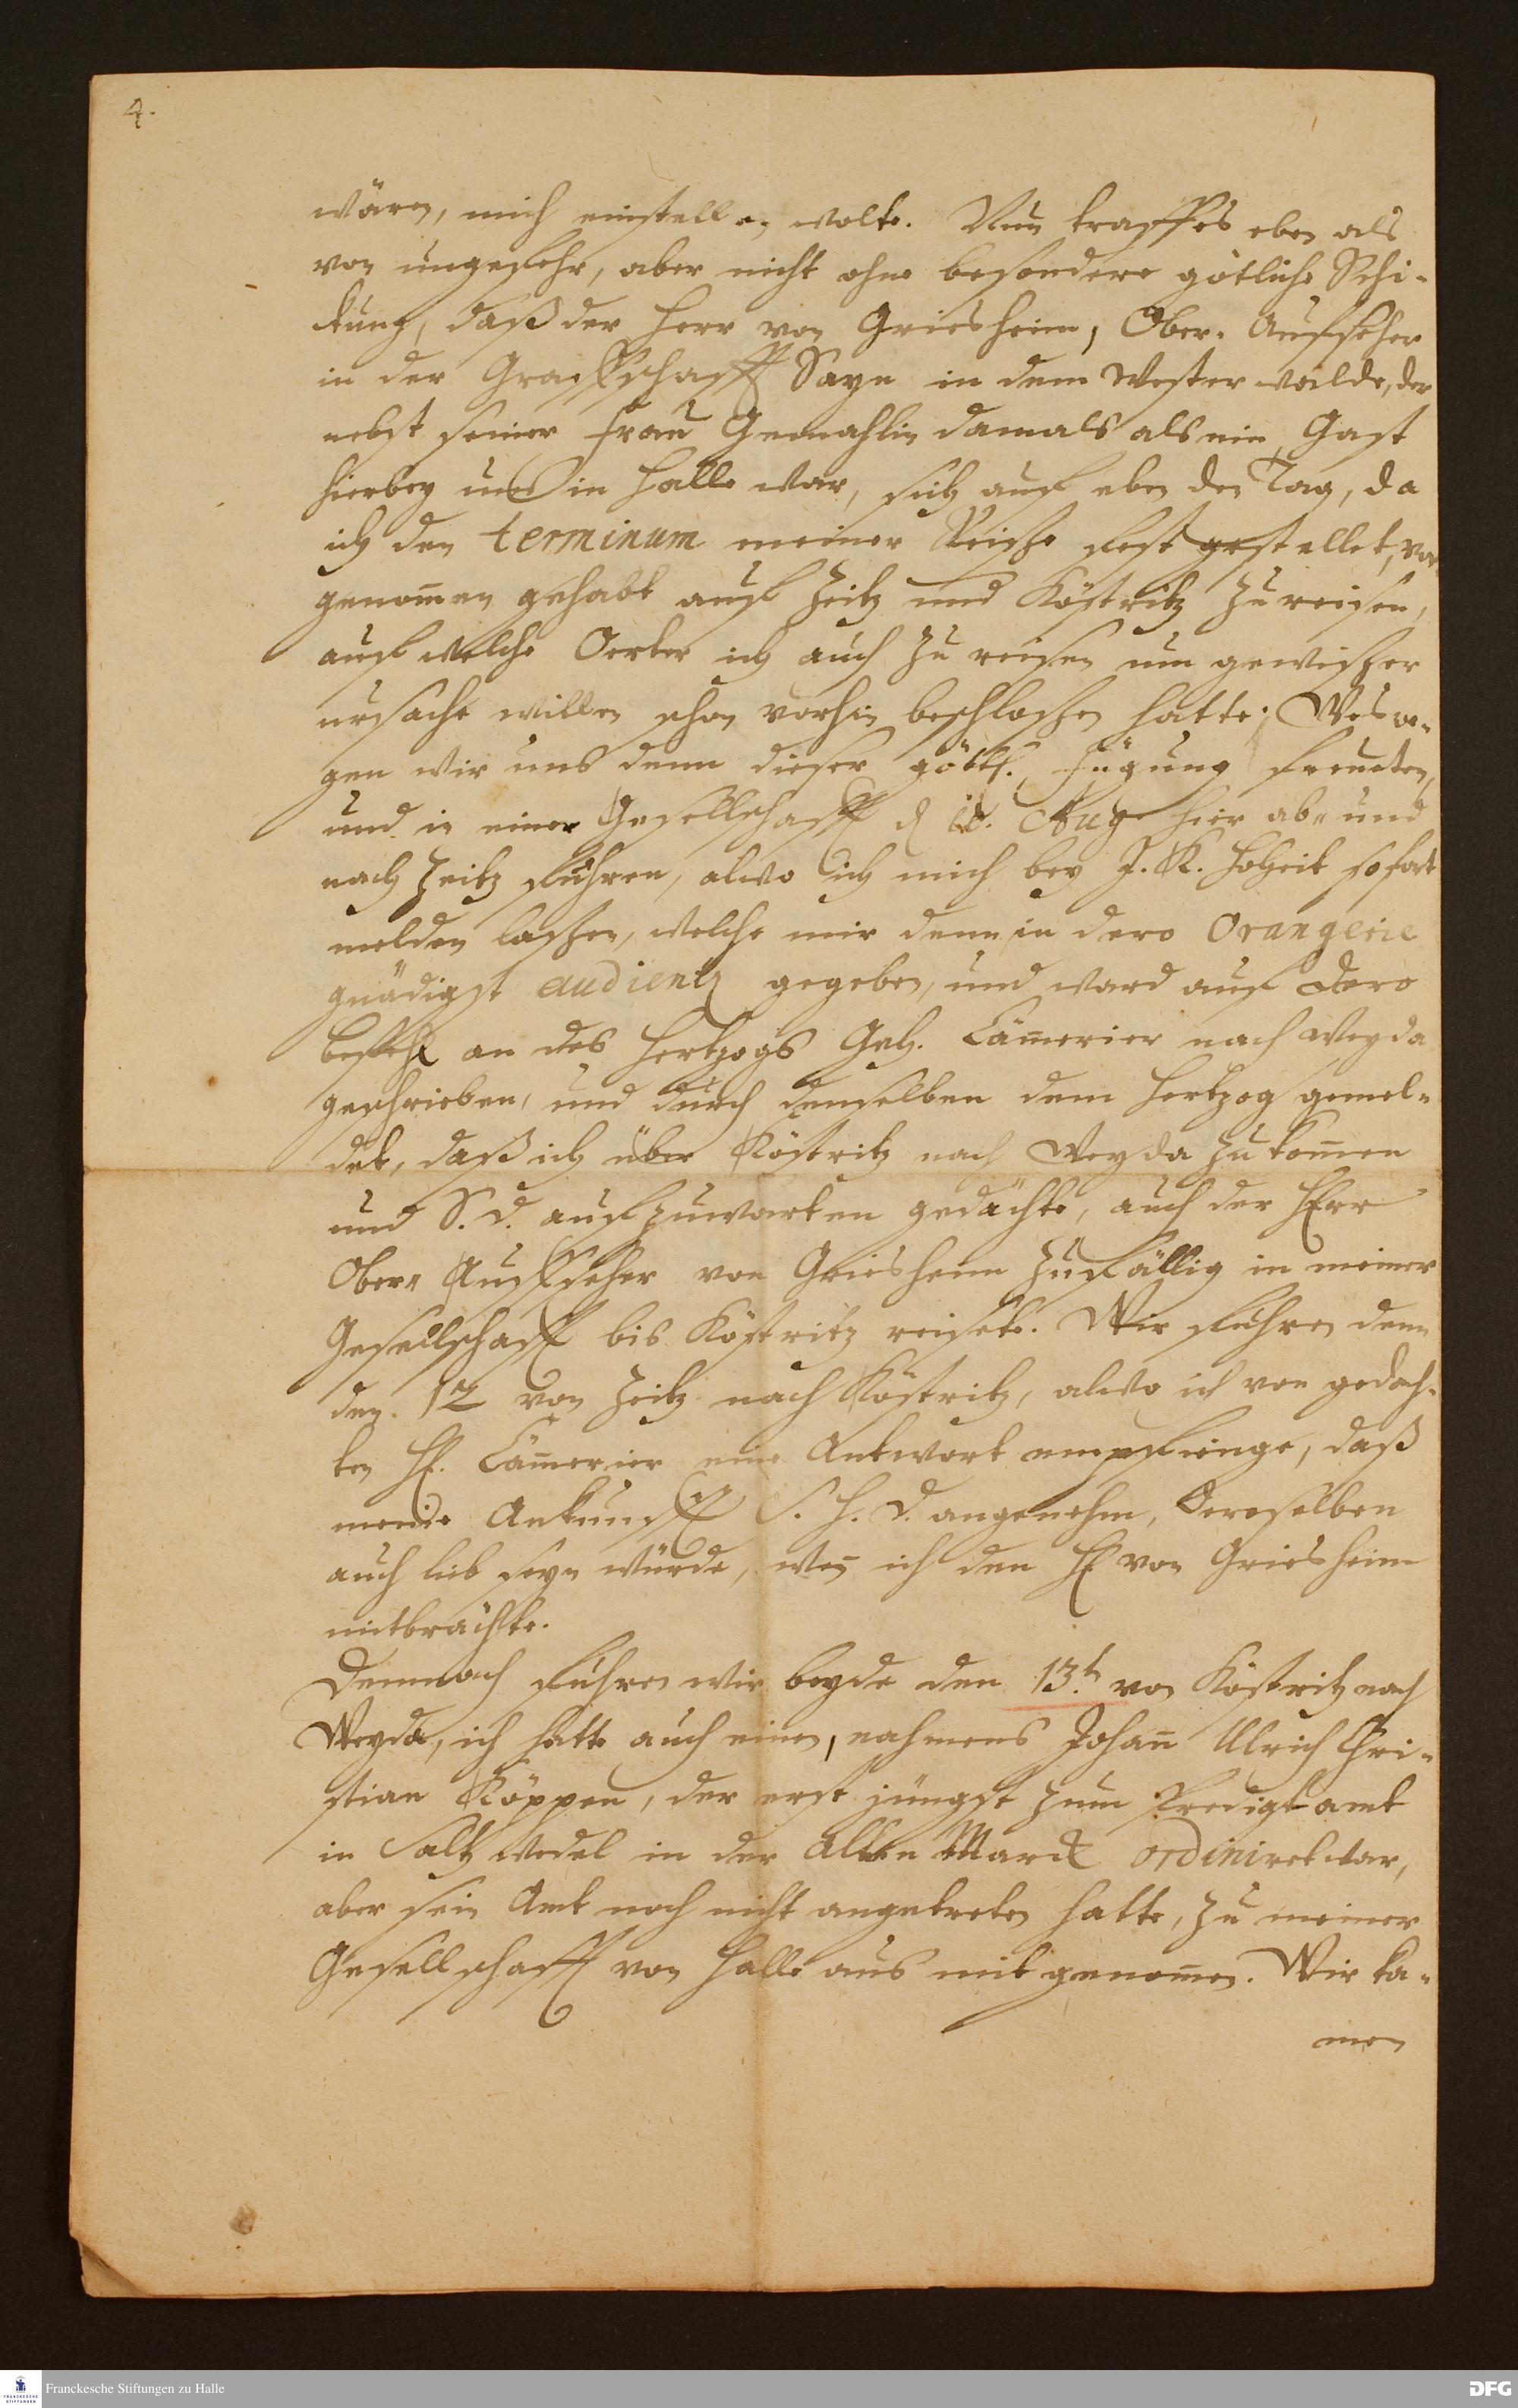 4.
wären, mich einstellen wolte. Nun traff es eben als
von ungefehr, aber nicht ohne besondere götliche Schi-
ckung, daß der Herr von Griesheim, Ober-Aufseher
in der Graffschafft Sayn in dem Westerwalde, der
nebst seiner Frau Gemahlin damals als ein Gast
hierbey uns in Halle war, sich auf eben den Tag, da
ich den terminum meiner Reise fest gestellet, vor
genom̅en gehabt auf Zeitz und Köstritz zu reisen,
auf welche Oerter ich auch zu reisen um gewisser
ursache willen schon vorhin beschlossen hatte; Weswe-
gen wir uns denn dieser göttl. Fügung freueten,
und in einer Gesellschafft d. Aug hier ab- und
nach Zeitz fuhren, alwo ich mich bey J. K. Hoheit sofort
melden lassen, welche mir denn in dero Orangerie
gnädigst audientz gegeben, und ward auf Dero
befehl an des Hertzogs Geh. Cäm̅erier nach Weyda
geschrieben, und durch denselben dem Hertzog gemel-
det, daß ich über Köstritz nach Weyda zu kom̅en
und S. D. aufzuwarten gedächte, auch der Herr
Ober-Auffseher von Griesheim zufällig in meiner
Gesellschafft bis Köstritz reisete. Wir fuhren denn
den 12 von Zeitz nach Köstritz, alwo ich von gedach-
ten H. Cäm̅erier eine Antwort empfienge, daß
meine Ankunfft S. H. D. angenehm, Deroselben
auch lieb seyn würde, wen̅ ich den H. von Griesheim
mitbrächte.
Demnach fuhren wir beyde den 13.t von Köstritz nach
Weyda, ich hatte auch einen, nahmens Johan̅ Ulrich Chri-
stian Köppen, der erst jüngst zum Predigtamt
in Saltzwedel in der Alten Marck ordiniret war,
aber sein Amt noch nicht angetreten hatte, zu meiner
Gesellschafft von Halle aus mit genom̅en. Wir ka-
men
FRANCKESCHE STIFTUNGEN
Franckesche Stiftungen zu Halle
DFG